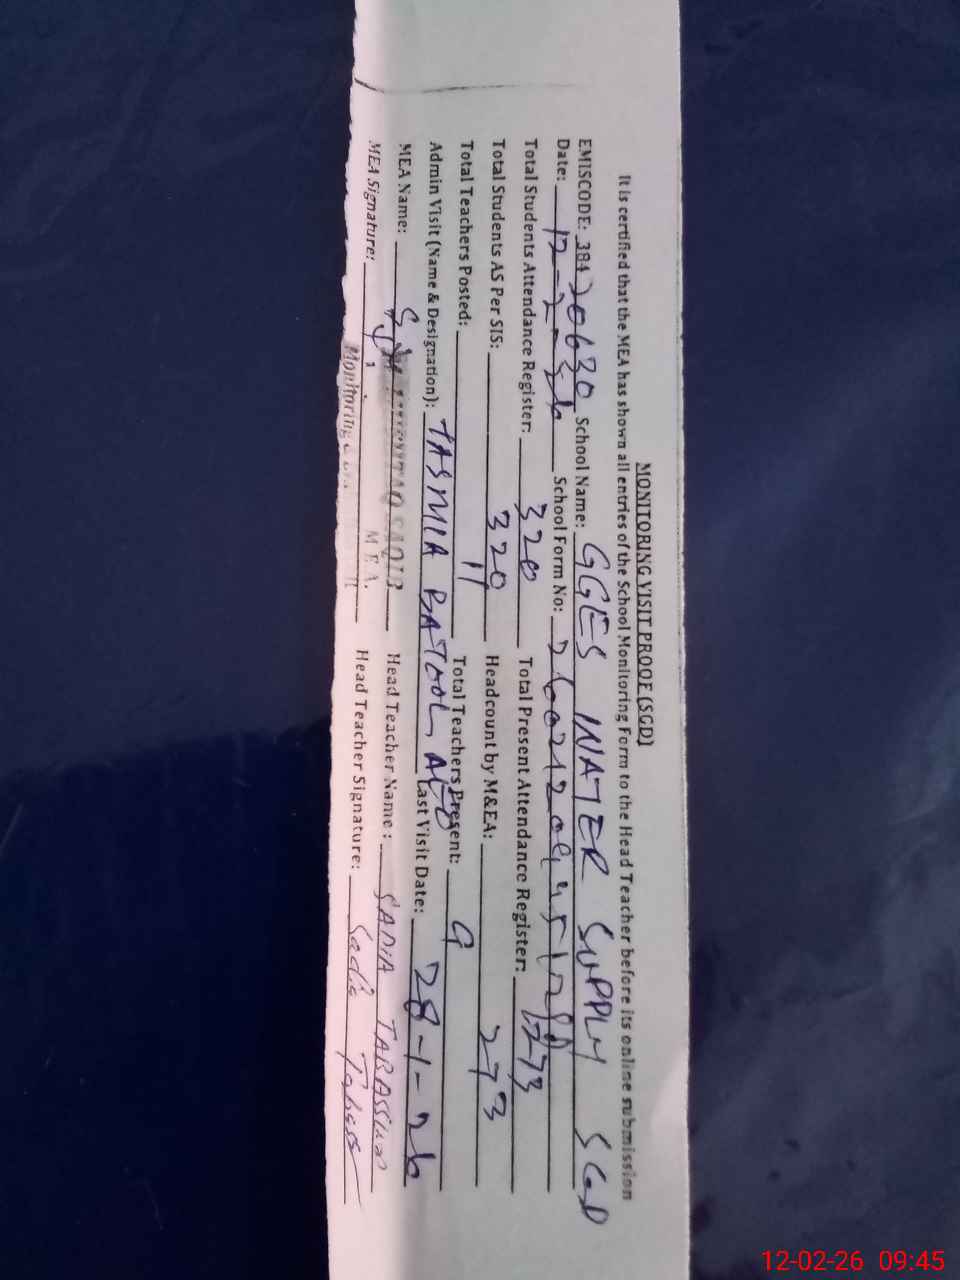 MONITORING VISIT PROOF (SGD)
It is certified that the MEA has shown all entries of the School Monitoring Form to the Head Teacher before its online submission
EMISCODE: 38420630 School Name: GGES WATER SUPPLY SGD
Date: 12-2-26 School Form No:
Total Students Attendance Register: 320 Total Present Attendance Register: 273
Total Students AS Per SIS: 320 Headcount by M&EA: 273
Total Teachers Posted: 11 Total Teachers Present: 9
Admin Visit (Name & Designation): TASMIA BATOOL AEO Last Visit Date: 28-1-26
MEA Name: SAQIB Head Teacher Name: SADIA TABASSUM
M E A.
MEA Signature: Head Teacher Signature: Sadia Tabass
Monitoring
12-02-26 09:45